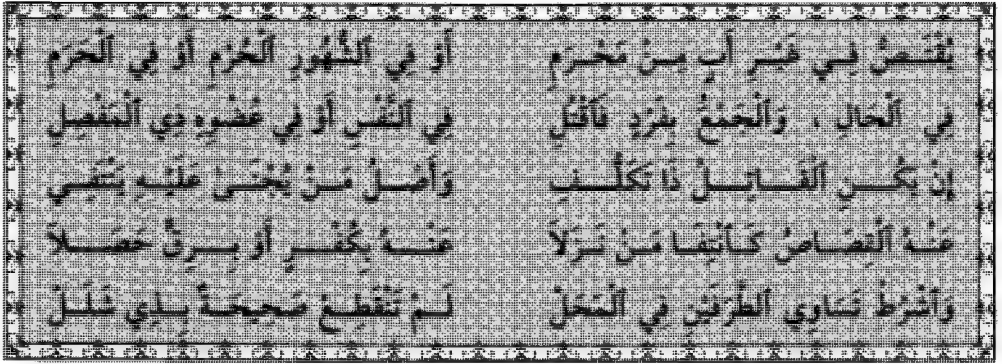 يُقْتَصُّ فِي غَيْرِ أَبٍ مِنْ مَحْرَمِ أَوْ فِي ٱلشُّهُورِ ٱلْحُرْمِ أَوْ فِي ٱلْحَرَمِ
فِي ٱلْحَالِ ، وَٱلْجَمْعُ بِفَرْدٍ فَٱقْتُلِ فِي ٱلنَّفْسِ أَوْ فِي عُضْوِهِ ذِي ٱلْمَفْصِلِ
إِنْ يَكُنِ ٱلْقَاتِلُ ذَا تَكَلُّفِ وَأَصْلُ مَنْ يُجْنَىٰ عَلَيْهِ يَنْتَفِي
عَنْهُ ٱلْقِصَاصُ كَٱنْتِفَا مَنْ نَزَلاَ عَنْهُ بِكُفْرٍ أَوْ بِرِقٍّ حَصَلاَ
وَٱشْرُطْ تَسَاوِي ٱلطَّرَفَيْنِ فِي ٱلْمَحَلّْ لَمْ تَنْقَطِعْ صَحِيحَةٌ بِذِي شَلَلْ